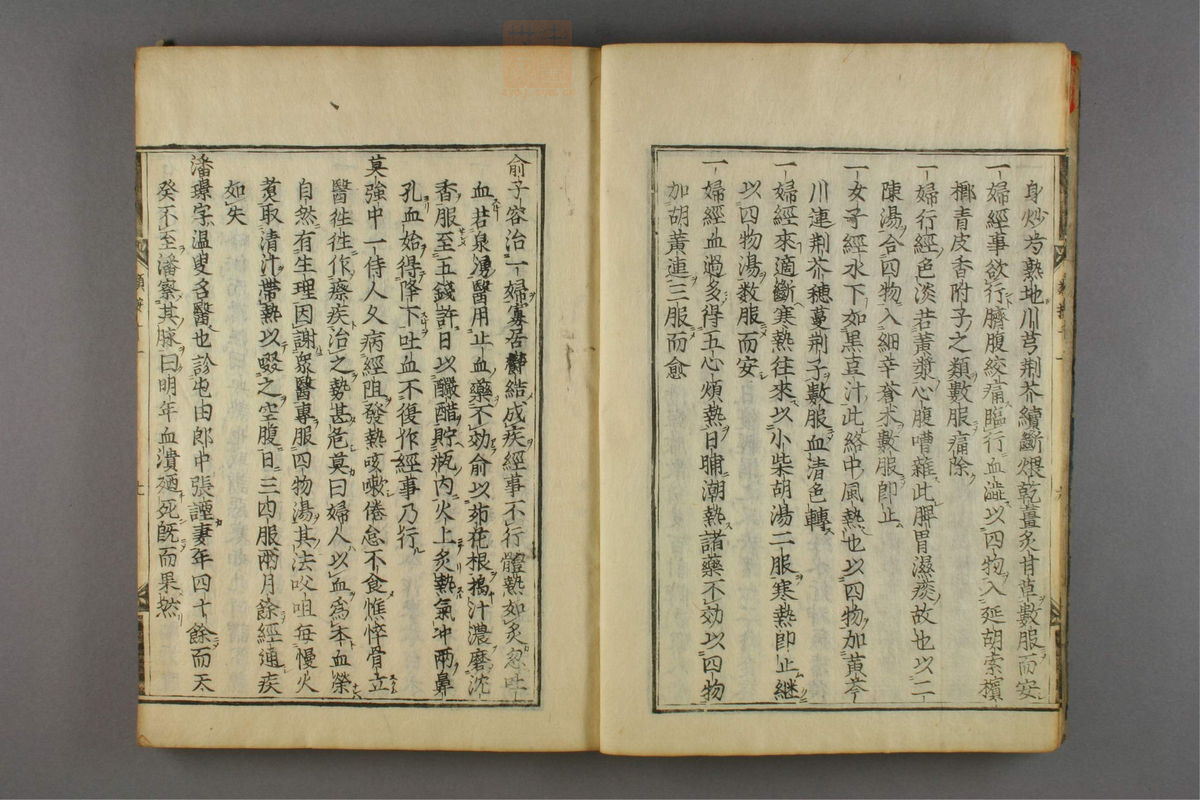 身炒芍熟地川芎荆芥續斷煨乾薑炙甘草數服而安
一婦經事欲行臍腹絞痛臨行血澁以四物入延胡索檳
榔青皮香附子之類數服痛除
一婦行經色淡若黄漿心腹嘈雜此脾胃濕痰故也以二
陳湯合四物入細辛蒼朮數服即止
一女子經水下如黒豆汁此絡中風熱也以四物加黄芩
川連荆芥穗蔓荆子數服血清色轉
一婦經來適斷寒熱往來以小柴胡湯二服寒熱即止継
以四物湯数服而安
一婦經血過多得五心煩熱日晡潮熱諸藥不効以四物
加胡黄連三服而愈
俞子容治一婦寡居鬱結成疾經事不行體熱如炙忽吐
血若泉湧醫用止血藥不効俞以茆花根搗汁濃磨沈
香服至五錢許日以釅醋貯瓶内火上炙熱氣冲兩鼻
孔血始得降下吐血不復作經事乃行
莫強中一侍人久病經阻發熱咳嗽倦怠不食憔悴骨立
醫徃徃作瘵疾治之勢甚危莫曰婦人以血爲本血榮
自然有生理因謝衆醫專服四物湯其法㕮咀每慢火
煮取清汁帶熱以啜之空腹日三四服兩月餘經通疾
如失
潘璟字温叟名醫也診屯田郎中張諲妻年四十餘而天
癸不至潘察其脉曰明年血潰廼死既而果然